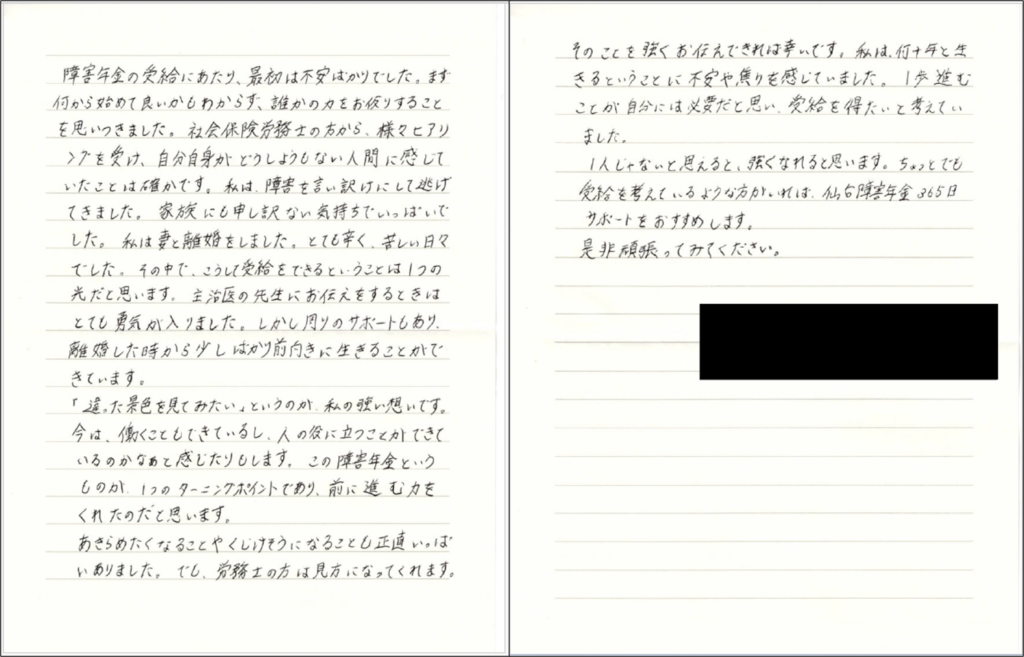 障害年金の受給にあたり、最初は不安ばかりでした。まず
何から始めて良いかもわからず、誰かの力をお仮りすること
を思いつきました。社会保険労務士の方から、様々ヒアリ
ングを受け、自分自身がどうしようもない人間に感じて
いたことは確かです。私は、障害を言い訳けにして逃げ
てきました。家族にも申し訳ない気持ちでいっぱいで
した。私は妻と離婚をしました。とても辛く、苦しい日々
でした。その中で、こうして受給をできるということは1つの
光だと思います。主治医の先生にお伝えをするときは
とても勇気が入りました。しかし周りのサポートもあり、
離婚した時から少しばかり前向きに生きることがで
きています。
「違った景色を見てみたい」というのが、私の強い想いです。
今は、働くこともできているし、人の役に立つことができて
いるのかなぁと感じたりもします。この障害年金という
ものが、1つのターニングポイントであり、前に進む力を
くれたのだと思います。
あきらめたくなることやくじけそうになることも正直いっぱ
いありました。でも、労務士の方は見方になってくれます。
そのことを強くお伝えできれば幸いです。私は、何十年と生
きるということに不安や焦りを感じていました。1歩進む
ことが自分には必要だと思い、受給を得たいと考えてい
ました。
1人じゃないと思えると、強くなれると思います。ちょっとでも
受給を考えているような方がいれば、仙台障害年金365日
サポートをおすすめします。
是非頑張ってみてください。